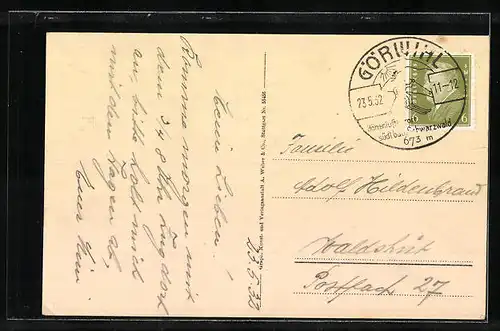 GÖRWIHL
23.5.32
11-12
Schwarzwald
673 m
6
6
23.5.32
Meine Lieben!
Komme morgen mit
dem 348 Uhr Zug dort
an, bitte holt mich
mit dem Wagen ab,
Euer
Graph. Kunst- und Verlagsanstalt A. Weber & Co., Stuttgart Nr.
Familie
Adolf Hildenbrand
Waldshut
Postfach 27